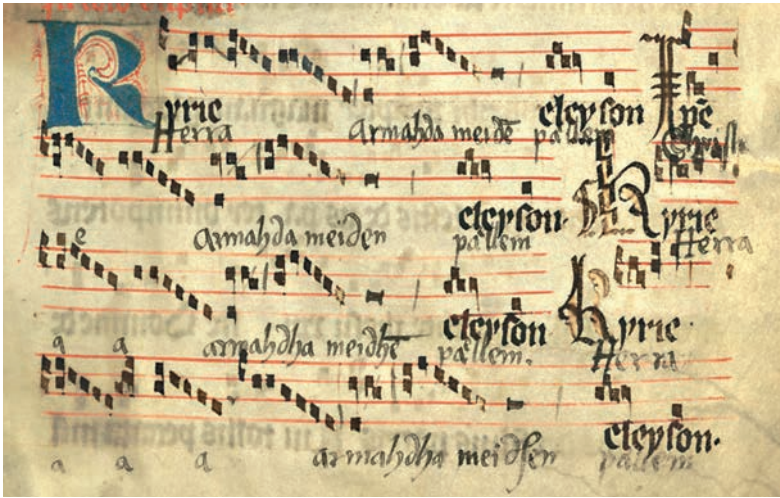 Kyrie eleyson Xpe
Herra armahda meidē pällem Christe
eleyson. Kyrie
armahda meiden pällem Herra
e
eleyson Kyrie
a a armahdha meidhē pællem. Herra
eleyson.
a a a armahdha meidhen pällem